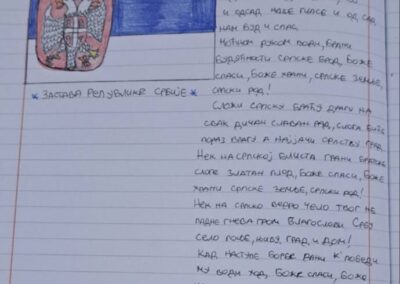 И ОДСАД НАШЕ ГЛАСЕ И ОД САД
НАМ БУДИ СПАС
МОЋНОМ РУКОМ ВОДИ, БРАНИ
БУДУЋНОСТИ СРПСКЕ БРОД, БОЖЕ
СПАСИ, БОЖЕ ХРАНИ, СРПСКЕ ЗЕМЉЕ,
СРПСКИ РОД!
* ЗАСТАВА РЕПУБЛИКЕ СРБИЈЕ *
СЛОЖИ СРПСКУ БРАЋУ ДРАГУ НА
СВАК ДИЧАН СЛАВАН РАД, СЛОГА БИЋЕ
ПОРАЗ ВРАГУ А НАЈЈАЧИ СРПСТВУ ГРАД.
НЕК НА СРПСКОЈ БЛИСТА ГРАНИ БРАТСКЕ
СЛОГЕ ЗЛАТАН ПЛОД, БОЖЕ СПАСИ, БОЖЕ
ХРАНИ СРПСКЕ ЗЕМЉЕ, СРПСКИ РОД!
НЕК НА СРПСКО ВЕДРО ЧЕЛО ТВОГ НЕ
ПАДНЕ ГНЕВА ГРОМ БЛАГОСЛОВИ СРБУ
СЕЛО ПОЉЕ, ЊИВУ, ГРАД И ДОМ!
КАД НАСТУПЕ БОРБЕ ДАНИ К' ПОБЕДИ
МУ ВОДИ ХОД, БОЖЕ СПАСИ, БОЖЕ